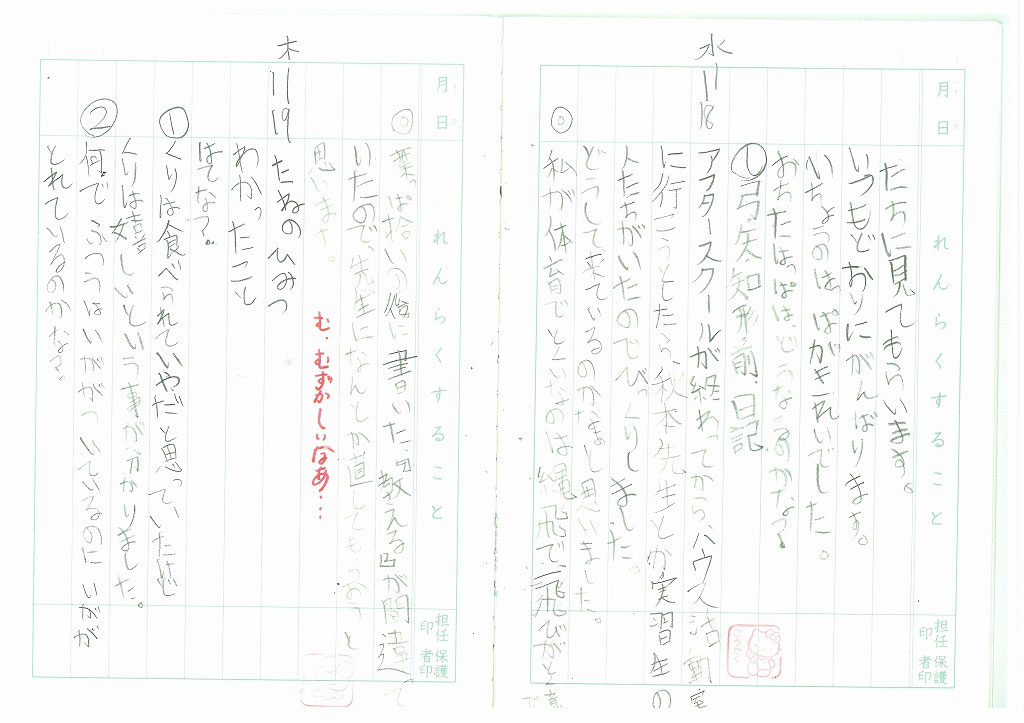 月 日
れんらくすること
担任印
保護者印
たちに見てもらいます。
いつもどおりにがんばります。
いちょうのはっぱがきれいでした。
おちたはっぱは、どうなるのかな?
①弓・矢・知・形・前・日記
水 11/18
アフタースクールが終わってから、ハウス活動室
に行こうとしたら、秋本先生とか実習生の
人たちがいたのでびっくりしました。
どうして、来ているのかなまし思いました。
◎
私が体育でとくいなのは縄飛で、二飛びがとくい
で
月 日
れんらくすること
担任印
保護者印
◎
葉っぱ拾いの後に書いた、「教える」が間違って
いたので、先生になんとか直してもらおうと
思います。
む、むずかしいなあ…
木 11/19
たねのひみつ
わかったこと
はてな?
①くりは食べられていやだと思って、いたけど
くりは嬉しいという事が分かりました。
②何で、ふつうはいががついているのに、いがが
とれているのかな?